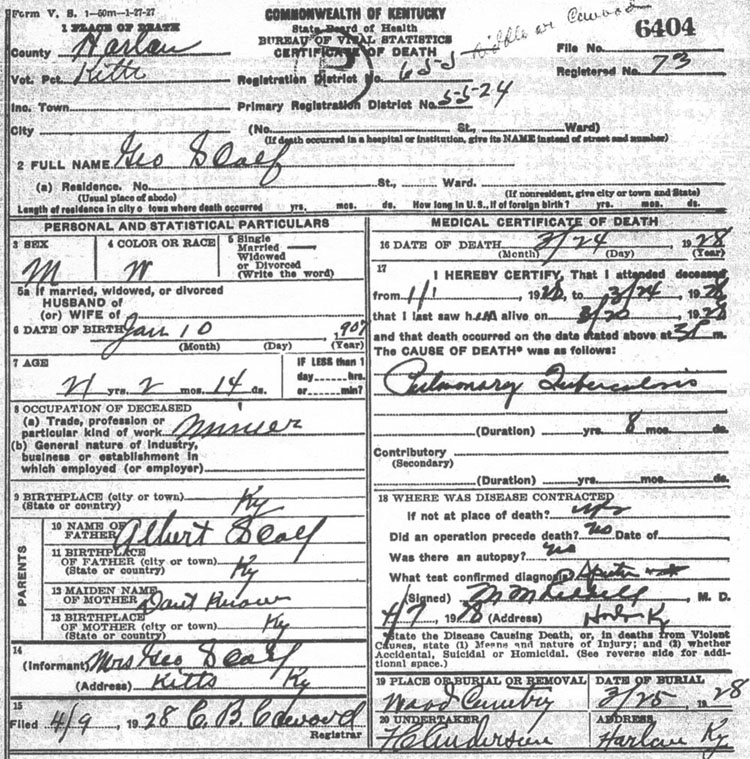 Form V. S. 1-50m-1-27-27
COMMONWEALTH OF KENTUCKY
State Board of Health
BUREAU OF VITAL STATISTICS
CERTIFICATE OF DEATH
File No. 6404
Registered No. 73
1 PLACE OF DEATH
County Harlan
Vot. Pct. Kitts
Registration District No. 655
Inc. Town
Primary Registration District No. 5524
City (No. St., Ward)
(If death occurred in a hospital or institution, give its NAME instead of street and number)
2 FULL NAME Geo Scalf
(a) Residence. No. St., Ward.
(Usual place of abode) (If nonresident, give city or town and State)
Length of residence in city or town where death occurred yrs. mos. ds. How long in U.S., if of foreign birth? yrs. mos. ds.
PERSONAL AND STATISTICAL PARTICULARS
3 SEX M
4 COLOR OR RACE W
5 Single
Married
Widowed
or Divorced
(Write the word)
5a If married, widowed, or divorced
HUSBAND of
(or) WIFE of
6 DATE OF BIRTH Jan 10, 1907
(Month) (Day) (Year)
7 AGE
21 yrs. 2 mos. 14 ds.
IF LESS than 1
day hrs.
or min?
8 OCCUPATION OF DECEASED
(a) Trade, profession or
particular kind of work Miner
(b) General nature of industry,
business or establishment in
which employed (or employer)
9 BIRTHPLACE (city or town)
(State or country) Ky
PARENTS
10 NAME OF
FATHER Albert Scalf
11 BIRTHPLACE
OF FATHER (city or town)
(State or country) Ky
12 MAIDEN NAME
OF MOTHER Dont Know
13 BIRTHPLACE
OF MOTHER (city or town)
(State or country) Ky
14
(Informant) Mrs Geo Scalf
(Address) Kitts Ky
15
Filed 4/9, 1928 C. B. Cawood
Registrar
MEDICAL CERTIFICATE OF DEATH
16 DATE OF DEATH 3/24 1928
(Month) (Day) (Year)
17
I HEREBY CERTIFY, That I attended deceased
from 1/1, 1928, to 3/24, 1928
that I last saw him alive on 3/20, 1928
and that death occurred on the date stated above at m.
The CAUSE OF DEATH* was as follows:
Pulmonary Tuberculosis
(Duration) yrs. 8 mos. ds.
Contributory
(Secondary)
(Duration) yrs. mos. ds.
18 WHERE WAS DISEASE CONTRACTED
If not at place of death?
Did an operation precede death? no Date of
Was there an autopsy? no
What test confirmed diagnosis?
(Signed) M. D.
4/7 1928 (Address) Ky
*State the Disease Causing Death, or, in deaths from Violent
Causes, state (1) Means and nature of Injury; and (2) whether
Accidental, Suicidal or Homicidal. (See reverse side for addi-
tional space.)
19 PLACE OF BURIAL OR REMOVAL
DATE OF BURIAL
Wood Cemetry 3/25, 1928
20 UNDERTAKER
ADDRESS
Anderson Harlan Ky